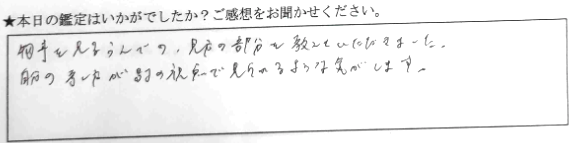 ★本日の鑑定はいかがでしたか？ご感想をお聞かせください。
相手を見るうんでの、見方の部分を教えていただきました。
自分の考え方が別の視点で見られるような気がします。